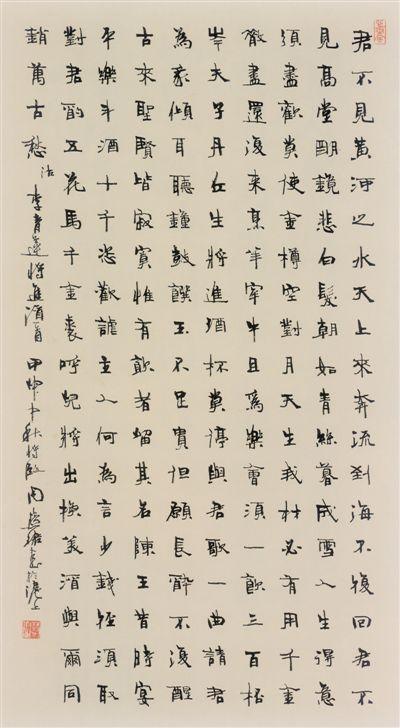 君不見黃河之水天上來奔流到海不復回君不
見高堂明鏡悲白髮朝如青絲暮成雪人生得意
須盡歡莫使金樽空對月天生我材必有用千金
散盡還復來烹羊宰牛且為樂會須一飲三百杯
岑夫子丹丘生將進酒杯莫停與君歌一曲請君
為我傾耳聽鐘鼓饌玉不足貴但願長醉不復醒
古來聖賢皆寂寞惟有飲者留其名陳王昔時宴
平樂斗酒十千恣歡謔主人何為言少錢徑須取
對君酌五花馬千金裘呼兒將出換美酒與爾同
銷萬古愁 沽 李青蓮將進酒 甲申中秋將臨 周 書於滬上